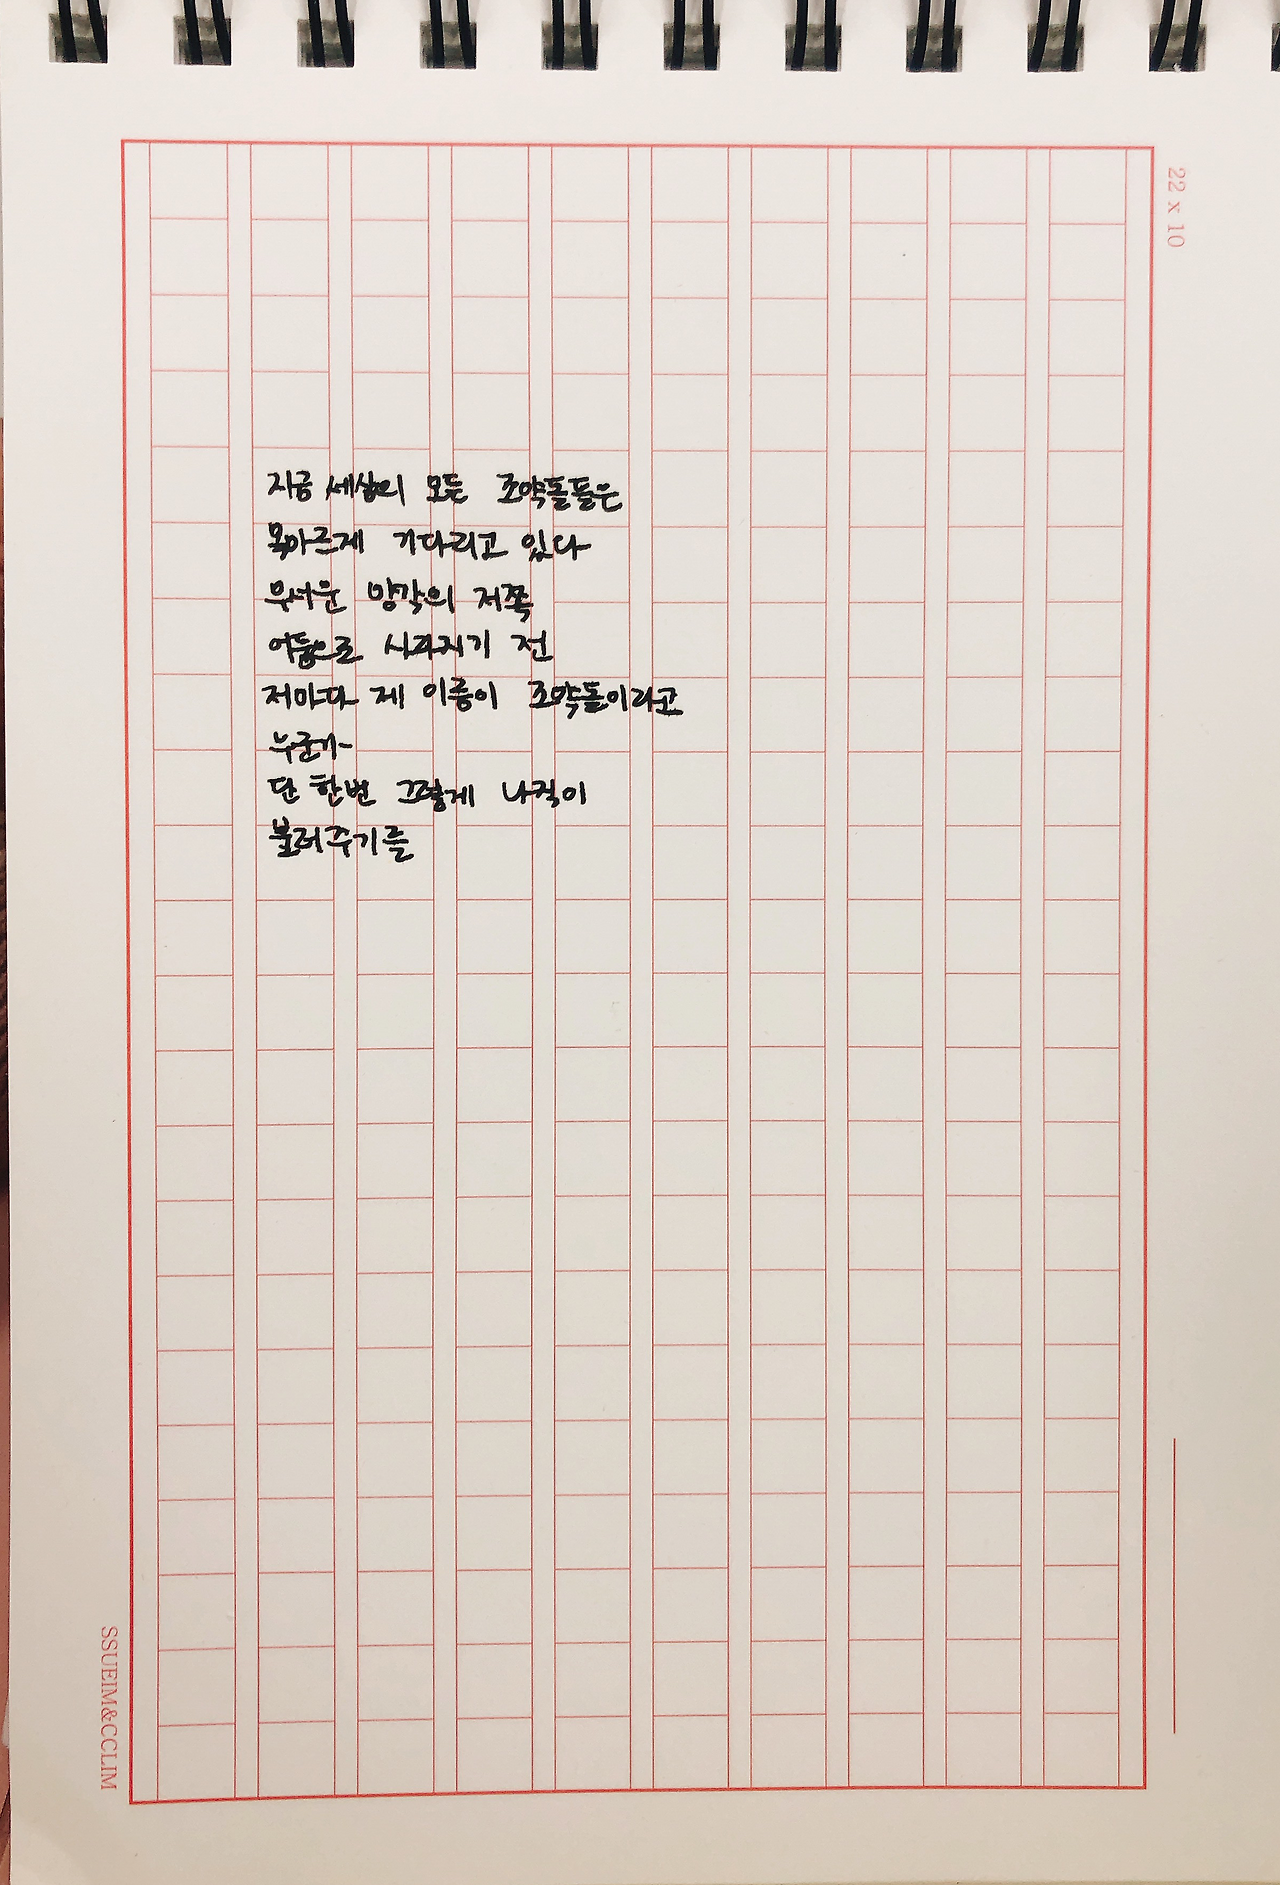 22 x 10
지금 세상의 모든 조약돌들은
목마르게 기다리고 있다
무서운 망각의 저쪽
어둠으로 사라지기 전
저마다 제 이름이 조약돌이라고
누군가
단 한번 그렇게 나직이
불러주기를
SSUEIM&CCLIM